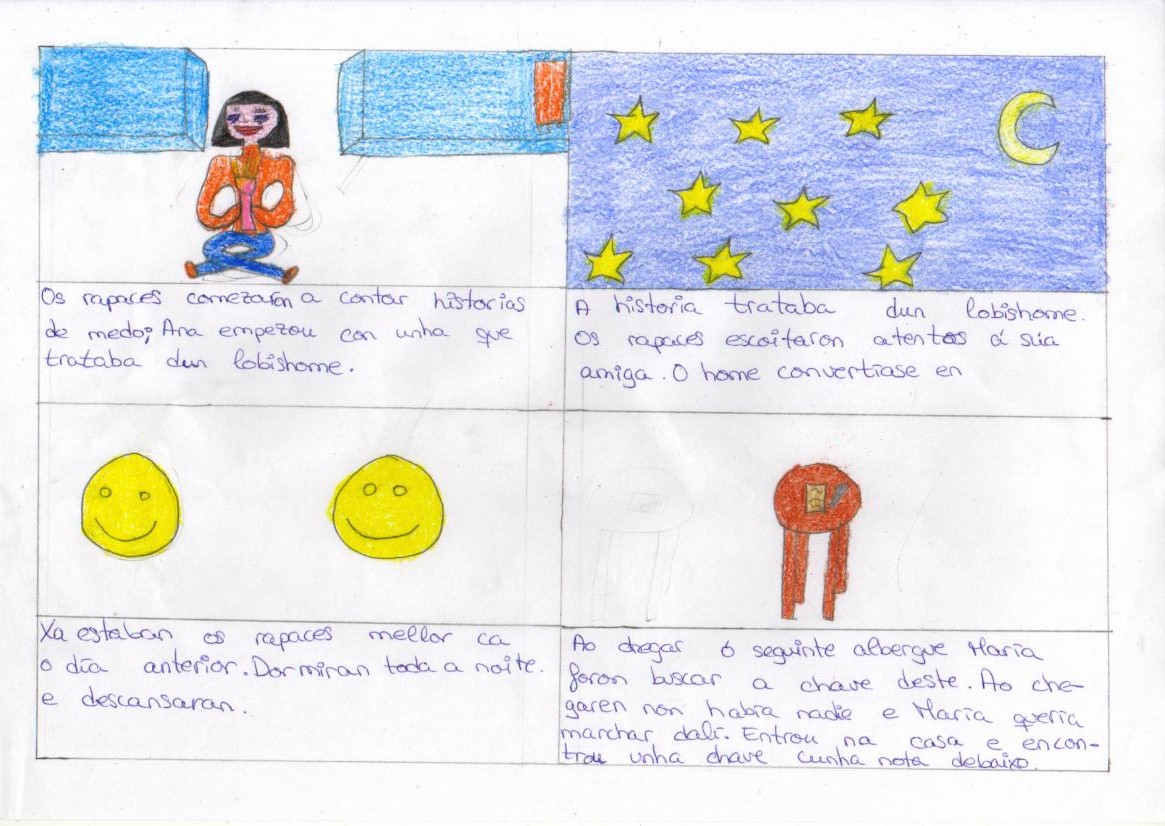 Os rapaces comezaron a contar historias
de medo; Ana empezou con unha que
trataba dun lobishome.
A historia trataba dun lobishome.
Os rapaces escoitaron atentos á súa
amiga. O home convertíase en
Xa estaban os rapaces mellor ca
o día anterior. Dormiran toda a noite.
e descansaran.
Ao chegar ó seguinte albergue María
foron buscar a chave deste. Ao che-
garen non había nadie e María quería
marchar dalí. Entrou na casa e encon-
trou unha chave cunha nota debaixo.